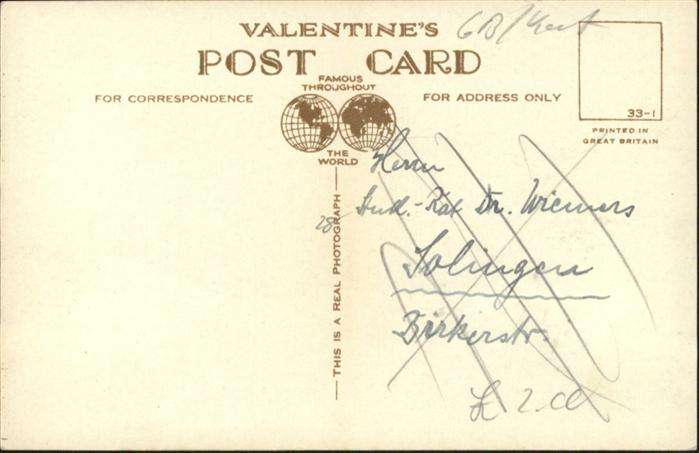 VALENTINE'S
POST CARD
GB/Kent
FAMOUS
THROUGHOUT
THE
WORLD
FOR CORRESPONDENCE
FOR ADDRESS ONLY
33-1
PRINTED IN
GREAT BRITAIN
THIS IS A REAL PHOTOGRAPH
28
Herrn
Stud.-Rat Dr. Wiemers
Solingen
Birkerstr.